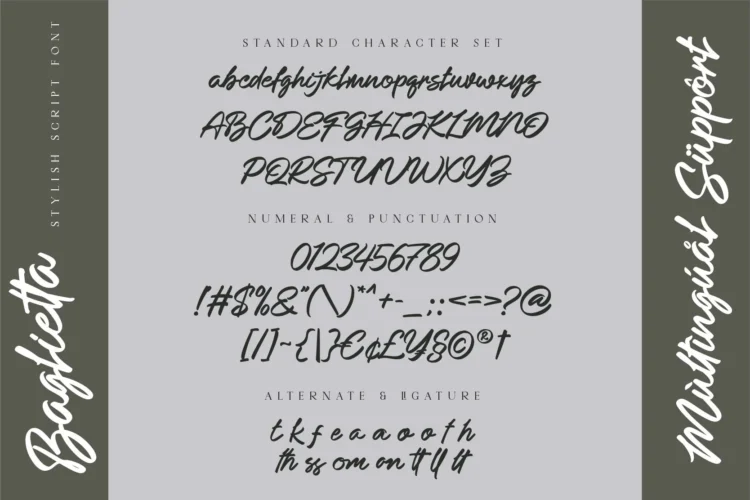 Baglietta
STYLISH SCRIPT FONT
STANDARD CHARACTER SET
abcdefghijklmnopqrstuvwxyz
ABCDEFGHIJKLMNO
PQRSTUVWXYZ
NUMERAL & PUNCTUATION
0123456789
!#$%&"(\)*^+-_;:<=>?@
[/]~{|}€¢£¥§©®†
ALTERNATE & LIGATURE
t k f e a a o o t h
th ss om on tt ll lt
Mùltingúål Süppôrt